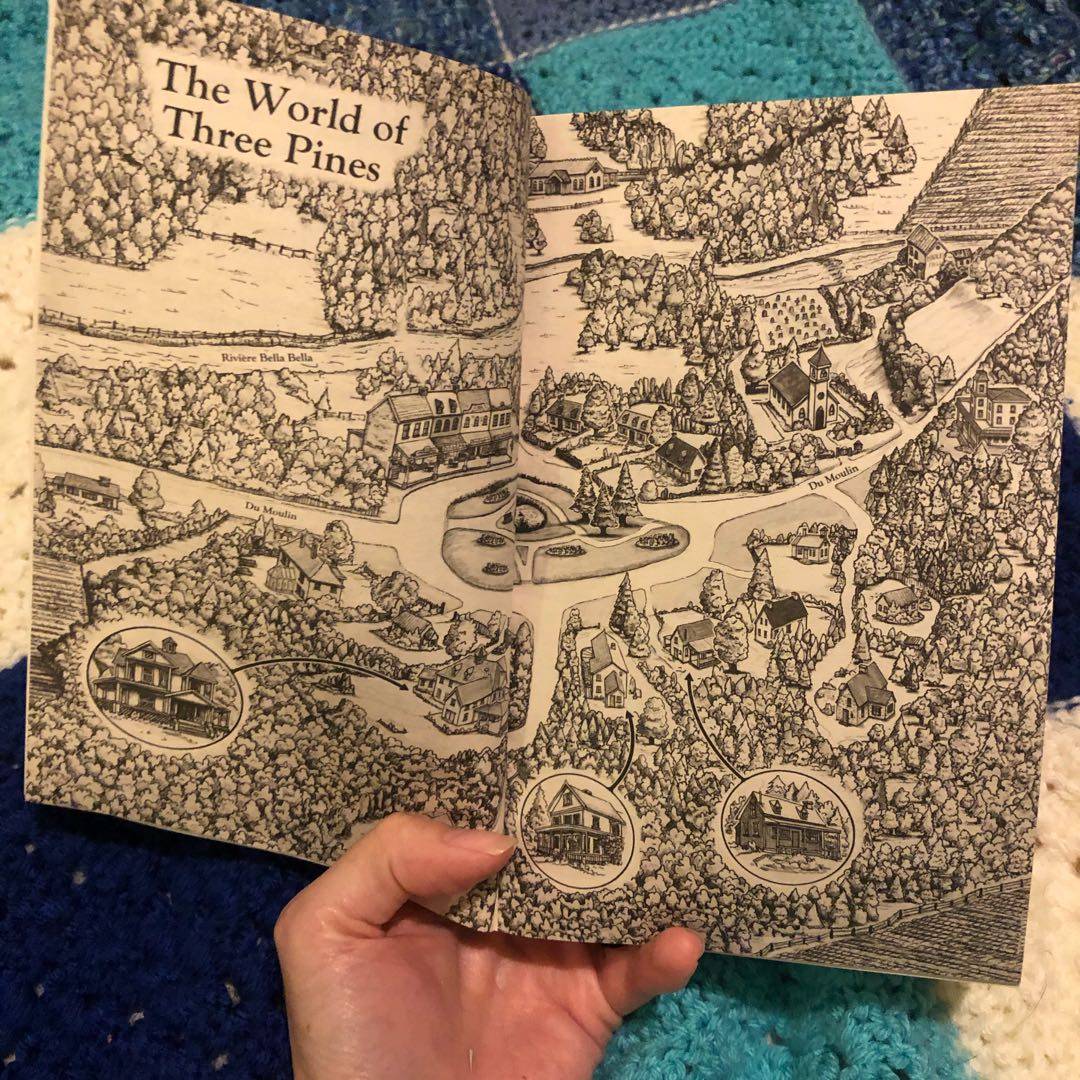 The World of
Three Pines
Rivière Bella Bella
Du Moulin
Du Moulin